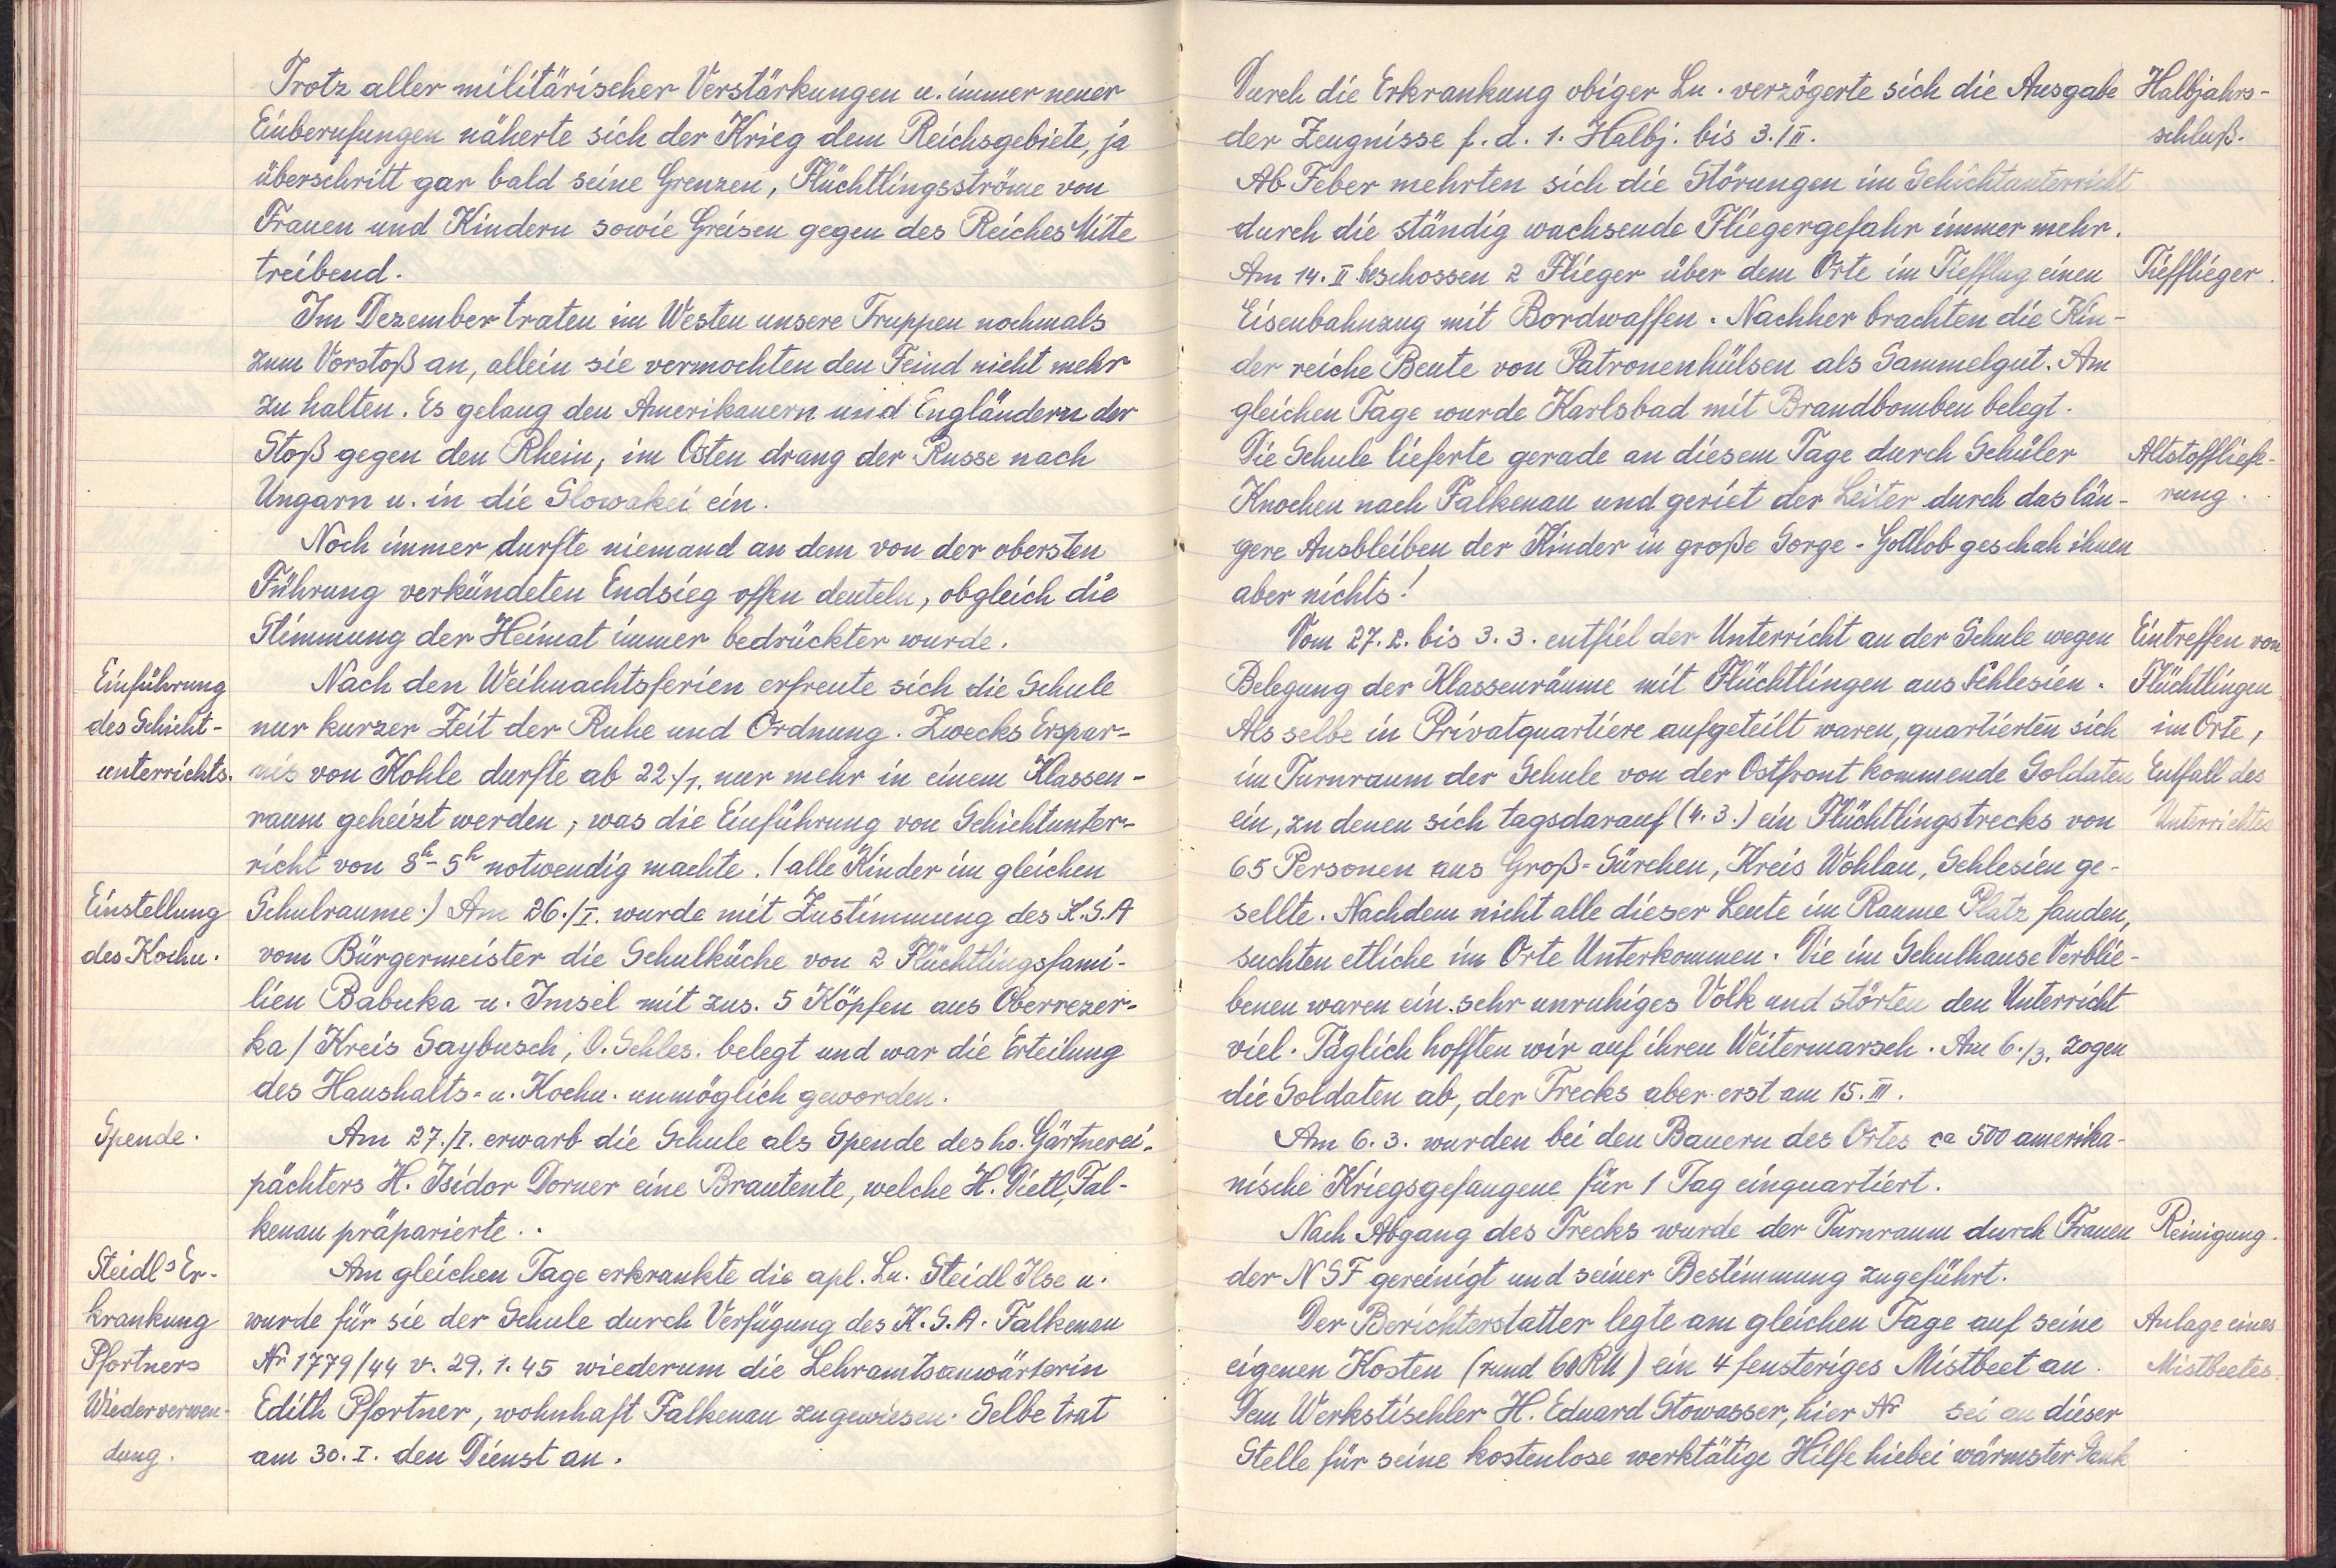 Trotz aller militärischer Verstärkungen u. immer neuer
Einberufungen näherte sich der Krieg dem Reichsgebiete, ja
überschritt gar bald seine Grenzen, Flüchtlingsströme von
Frauen und Kindern sowie Greisen gegen des Reiches Mitte
treibend.
Im Dezember traten im Westen unsere Truppen nochmals
zum Vorstoß an, allein sie vermochten den Feind nicht mehr
zu halten. Es gelang den Amerikanern und Engländern der
Stoß gegen den Rhein, im Osten drang der Russe nach
Ungarn u. in die Slowakei ein.
Noch immer durfte niemand an dem von der obersten
Führung verkündeten Endsieg offen deuteln, obgleich die
Stimmung der Heimat immer bedrückter wurde.
Einführung
des Schicht-
unterrichts.
Nach den Weihnachtsferien erfreute sich die Schule
nur kurzer Zeit der Ruhe und Ordnung. Zwecks Erspar-
nis von Kohle durfte ab 22./1. nur mehr in einem Klassen-
raum geheizt werden, was die Einführung von Schichtunter-
richt von 8h - 5h notwendig machte. (alle Kinder im gleichen
Einstellung
des Kochu.
Schulraume.) Am 26./I. wurde mit Zustimmung des K.S.A
vom Bürgermeister die Schulküche von 2 Flüchtlingsfami-
lien Babuka u. Imsel mit zus. 5 Köpfen aus Oberrezer-
ka / Kreis Saybusch, O. Schles. belegt und war die Erteilung
des Haushalts- u. Kochu. unmöglich geworden.
Spende.
Am 27./I. erwarb die Schule als Spende des ho. Gärtnerei-
pächters H. Isidor Dorner eine Brautente, welche H. Dietl, Fal-
kenau präparierte.
Steidls Er-
krankung
Pfortners
Wiederverwen-
dung.
Am gleichen Tage erkrankte die apl. Ln. Steidl Ilse u.
wurde für sie der Schule durch Verfügung des K.S.A. Falkenau
Nr 1779/44 v. 29.1.45 wiederum die Lehramtsanwärterin
Edith Pfortner, wohnhaft Falkenau zugewiesen. Selbe trat
am 30.I. den Dienst an.
Durch die Erkrankung obiger Ln. verzögerte sich die Ausgabe
der Zeugnisse f. d. 1. Halbj. bis 3./II.
Halbjahrs-
schluß.
Ab Feber mehrten sich die Störungen im Schichtunterricht
durch die ständig wachsende Fliegergefahr immer mehr.
Am 14. II beschossen 2 Flieger über dem Orte im Tiefflug einen
Tiefflieger.
Eisenbahnzug mit Bordwaffen. Nachher brachten die Kin-
der reiche Beute von Patronenhülsen als Sammelgut. Am
gleichen Tage wurde Karlsbad mit Brandbomben belegt.
Die Schule lieferte gerade an diesem Tage durch Schüler
Altstofflief-
rung.
Knochen nach Falkenau und geriet der Leiter durch das län-
gere Ausbleiben der Kinder in große Sorge. Gottlob geschah ihnen
aber nichts!
Vom 27.2. bis 3.3. entfiel der Unterricht an der Schule wegen
Belegung der Klassenräume mit Flüchtlingen aus Schlesien.
Eintreffen von
Flüchtlingen
im Orte,
Entfall des
Unterrichtes
Als selbe in Privatquartiere aufgeteilt waren, quartierten sich
im Turnraum der Schule von der Ostfront kommende Soldaten
ein, zu denen sich tagsdarauf (4.3.) ein Flüchtlingstrecks von
65 Personen aus Groß-Sürchen, Kreis Wohlau, Schlesien ge-
sellte. Nachdem nicht alle dieser Leute im Raume Platz fanden,
suchten etliche im Orte Unterkommen. Die im Schulhause Verblie-
benen waren ein sehr unruhiges Volk und störten den Unterricht
viel. Täglich hofften wir auf ihren Weitermarsch. Am 6./3. zogen
die Soldaten ab, der Trecks aber erst am 15. III.
Am 6.3. wurden bei den Bauern des Ortes ca 500 amerika-
nische Kriegsgefangene für 1 Tag einquartiert.
Nach Abgang des Trecks wurde der Turnraum durch Frauen
Reinigung.
der NSF gereinigt und seiner Bestimmung zugeführt.
Der Berichterstatter legte am gleichen Tage auf seine
Anlage eines
Mistbeetes.
eigenen Kosten (rund 60 RM) ein 4 fensteriges Mistbeet an.
Dem Werkstischler H. Eduard Stowasser, hier Nr sei an dieser
Stelle für seine kostenlose werktätige Hilfe hiebei wärmster Dank